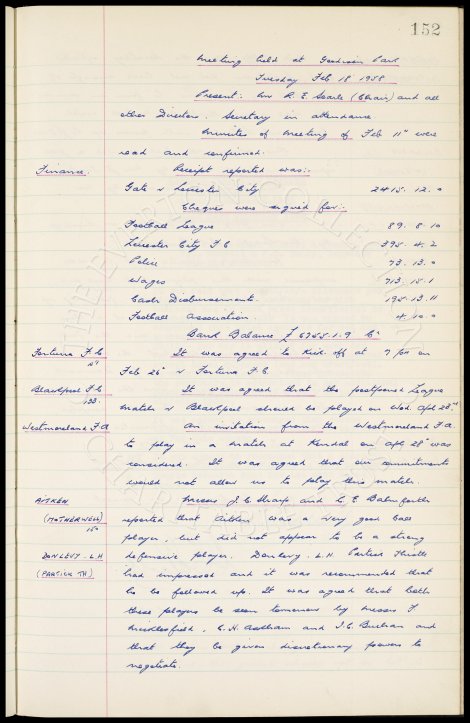 152
Meeting held at Goodison Park
Tuesday Feb 18 1958
Present: Mr R. E. Searle (Chair) and all
other Directors. Secretary in attendance
Minutes of Meeting of Feb 11th were
read and confirmed.
Finance. Receipt reported was:-
Gate v Leicester City 2415. 12. 0
Cheques were signed for:-
Football League 89. 8. 10
Leicester City F C 395. 4. 2
Police 73. 13. 0
Wages 713. 15. 1
Cash Disbursements 195. 13. 11
Football Association. 4. 10. 0
Bank Balance £6755-1-9 Cr
Fortuna F.C. It was agreed to Kick off at 7 pm on
Feb 26th v Fortuna F C
Blackpool F C It was agreed that the postponed League
133. match v Blackpool should be played on Wed. Apl 23rd
Westmoreland F A An invitation from the Westmoreland F A
to play in a match at Kendal on Apl 28th was
considered. It was agreed that our commitments
would not allow us to play this match.
AITKEN Messrs J. C. Sharp and C. E. Balmforth
(MOTHERWELL) reported that Aitken was a very good ball
150 player, but did not appear to be a strong
DONLEVY - L.H defensive player. Donlevy. L.H. Partick Thistle
(PARTICK TH) had impressed and it was recommended that
he be followed up. It was agreed that both
these players be seen tomorrow by Messrs F
Micklesfield, C. H. Askham and I. C. Buchan and
that they be given discretionary powers to
negotiate.
THE EVERTON COLLECTION
CHARITABLE